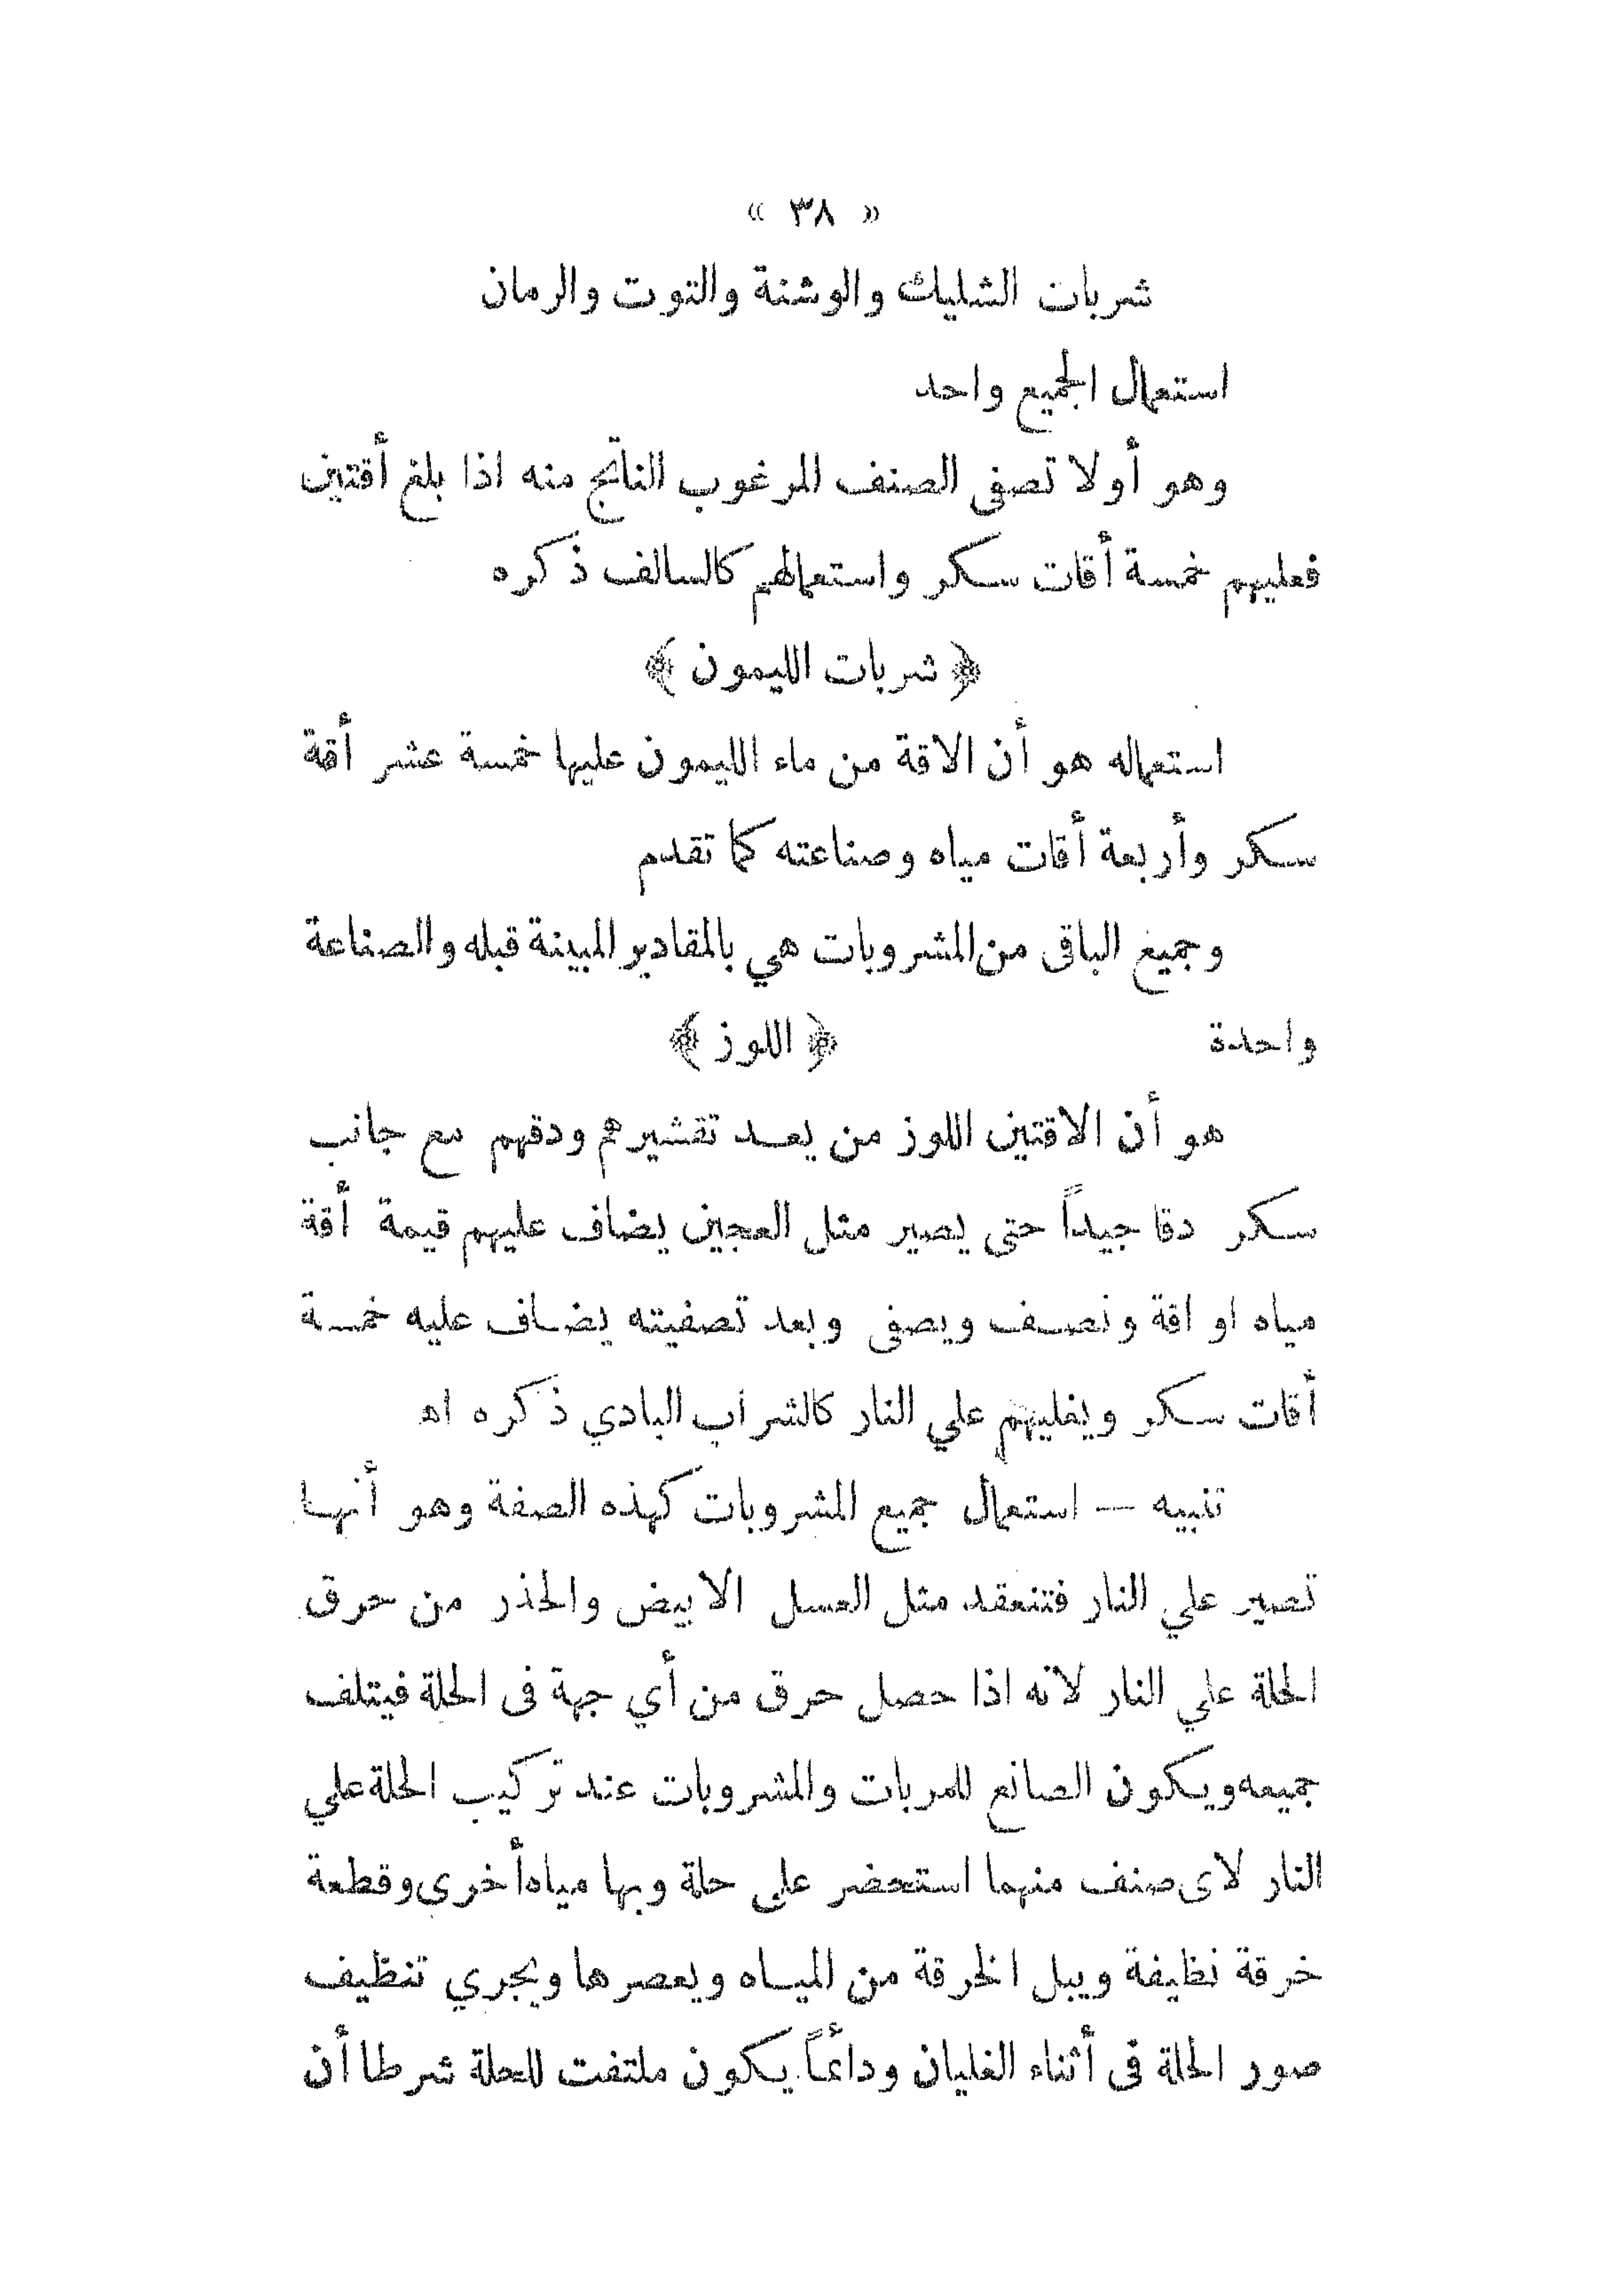 « ٣٨ »
شربات الشليك والوشنة والتوت والرمان
استعمال الجميع واحد
وهو أولا تصفى الصنف المرغوب الناتج منه اذا بلغ أقتين
فعليهم خمسة أقات سكر واستعمالهم كالسالف ذكره
﴿ شربات الليمون ﴾
استعماله هو أن الاقة من ماء الليمون عليها خمسة عشر أقة
سكر وأربعة أقات مياه وصناعته كما تقدم
وجميع الباقى من المشروبات هي بالمقادير المبينة قبله والصناعة
واحدة ﴿ اللوز ﴾
هو أن الاقتين اللوز من بعد تقشيرهم ودقهم مع جانب
سكر دقا جيداً حتى يصير مثل العجين يضاف عليهم قيمة أقة
مياه او اقة ونصف ويصفى وبعد تصفيته يضاف عليه خمسة
أقات سكر ويغليهم علي النار كالشراب البادي ذكره اه
تنبيه — استعمال جميع المشروبات كهذه الصفة وهو أنها
تصير علي النار فتنعقد مثل العسل الابيض والحذر من حرق
الحلة علي النار لانه اذا حصل حرق من أي جهة فى الحلة فيتلف
جميعه ويكون الصانع للمربات والمشروبات عند تركيب الحلة علي
النار لاى صنف منهما استحضر على حلة وبها مياه أخرى وقطعة
خرقة نظيفة ويبل الخرقة من المياه ويعصرها ويجري تنظيف
صور الحلة فى أثناء الغليان ودأماً يكون ملتفت للحلة شرطا أن